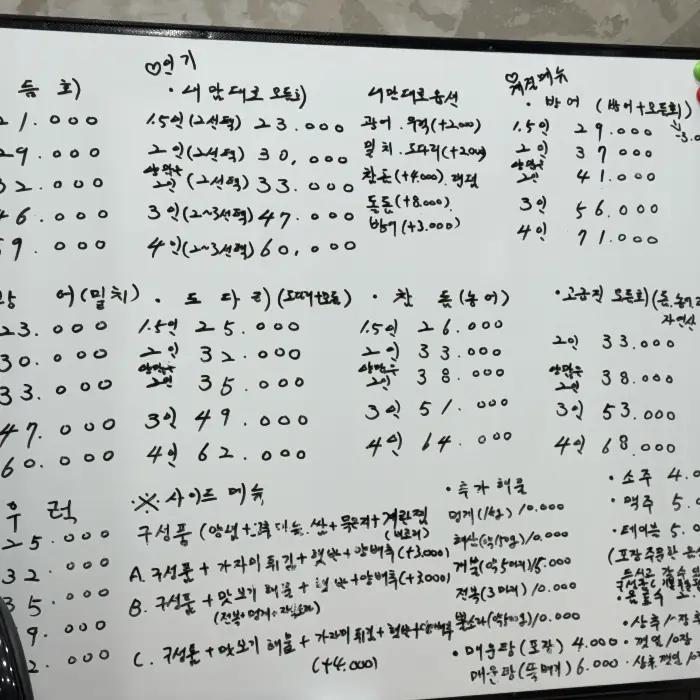 듬 회)
21.000
29.000
32.000
46.000
59.000
♡인기
· 내 맘대로 모듬회)
1.5인 (2선택) 23.000
2인 (2선택) 30,000
양많은 2인 (2선택) 33.000
3인 (2~3선택) 47.000
4인 (2~3선택) 60,000
내맘대로 옵션
광어. 우럭(+2,000)
밀치. 도다리(+2,000)
참돔(+4,000)
돌돔(+8,000)
방어(+3,000)
♡계절메뉴
· 방 어 (방어+모듬회)
1.5인 29.000
2인 37.000
양많은 2인 41.000
3인 56.000
4인 71.000
어(밀치)
23.000
30.000
33.000
47.000
60.000
· 도 다 리 (도다리+모듬)
1.5인 25.000
2인 32.000
양많은 2인 35.000
3인 49.000
4인 62.000
· 참 돔 (농어)
1.5인 26.000
2인 33.000
양많은 2인 38.000
3인 51.000
4인 64.000
· 고급진 모듬회 (돔,농어
자연산
2인 33.000
양많은 2인 38.000
3인 53.000
4인 68.000
우 럭
25.000
32.000
35.000
9.000
2.000
·※. 사이드 메뉴
구성품 (양념+고추,마늘,쌈+묵은지+계란찜
A. 구성품 + 가자미 튀김 + 햇반+양배추(+3,000)
B. 구성품 + 맛보기 해물 + 햇반+양배추(+3000)
(전복+멍게+
C. 구성품 + 맛보기 해물 + 가자미 튀김 + 햇반+양배추
(+4.000)
· 추가 해물
멍게(1kg) 10.000
해삼(약150g) 10.000
개불(약5마리) 15.000
전복(3마리) 10.000
뿔소라(약500g) 10.000
· 매운탕(포장) 4.000
매운탕(뚝배기) 6.000
· 소주 4.0
· 맥주 5.0
· 테이블 5.0
(포장 주문한 음식
드시고 갈수 있
· 음료수 2.
· 상추/
· 깻잎 /10장
· 상추 깻잎